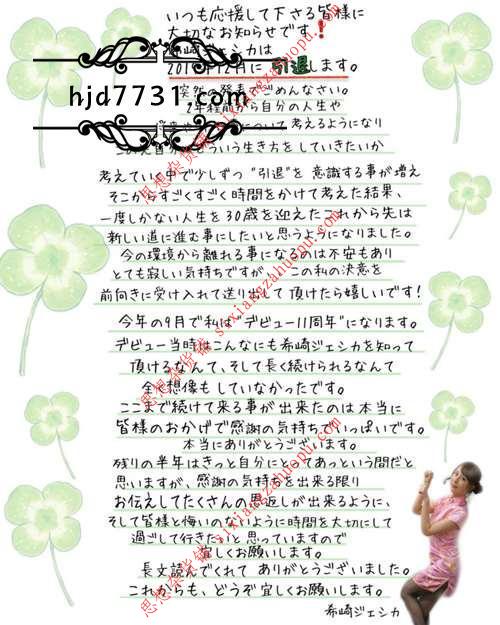 いつも応援して下さる皆様に
大切なお知らせです!
希崎ジェシカは
2019年12月に引退します。
突然の発表でごめんなさい。
hjd7731.com
2年程前から自分の人生や
について考えるようになり
どういう生き方をしていきたいか
考えていく中で少しずつ"引退"を意識する事が増え
そこからすごくすごく時間をかけて考えた結果、
一度しかない人生を30歳を迎えたこれから先は
新しい道に進む事にしたいと思うようになりました。
今の環境から離れる事になるのは不安もあり
とても寂しい気持ちですが、この私の決意を
前向きに受け入れて送り出して頂けたら嬉しいです!
今年の9月で私は"デビュー11周年"になります。
デビュー当時はこんなにも希崎ジェシカを知って
頂けるなんて、そして長く続けられるなんて
全く想像もしていなかったです。
ここまで続けて来る事が出来たのは本当に
皆様のおかげで感謝の気持ちでいっぱいです。
本当にありがとうございます。
残りの半年はきっと自分にとってあっという間だと
思いますが、感謝の気持ちを出来る限り
お伝えしてたくさんの恩返しが出来るように、
そして皆様と悔いのないように時間を大切にして
過ごして行きたいと思っていますので
宜しくお願いします。
長文読んでくれてありがとうございました。
これからも、どうぞ宜しくお願いします。
希崎ジェシカ
思想杂货铺 sixiangzahuopu.com
思想杂货铺 sixiangzahuopu.com
思想杂货铺 sixiangzahuopu.com